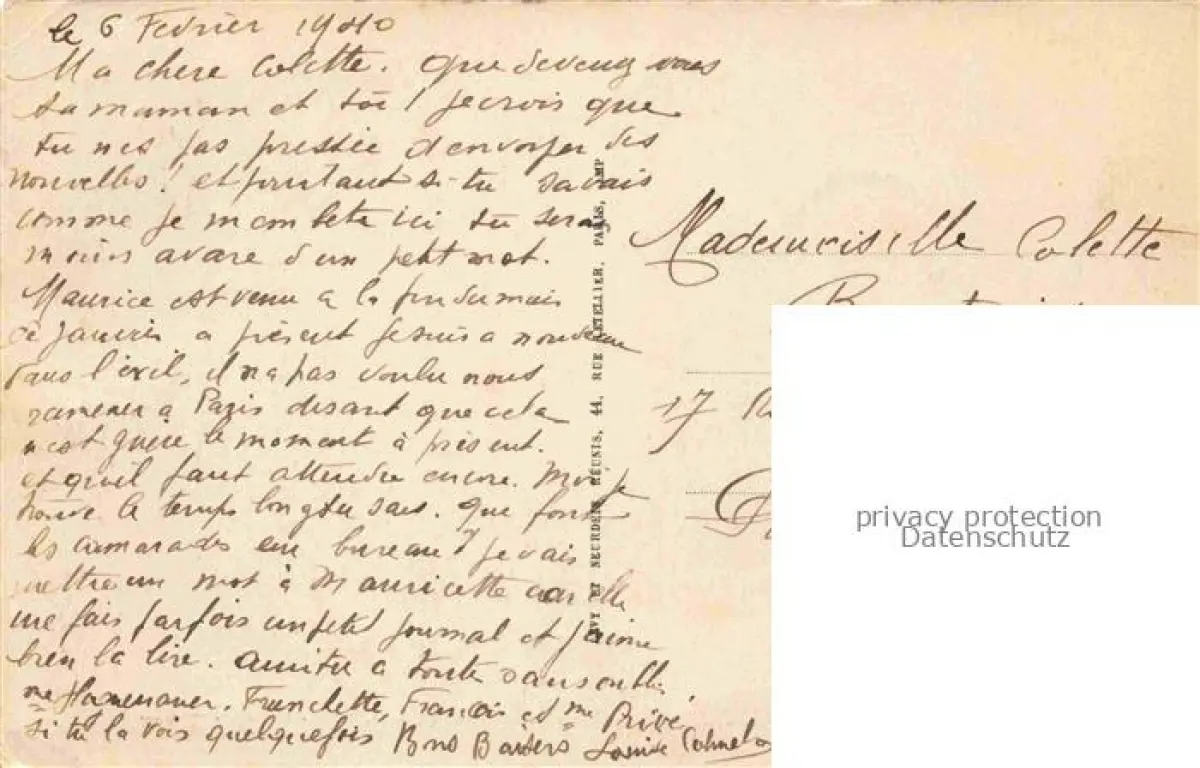 le 6 Fevrier 1940
Ma chere Colette. Que devenez vous
ta maman et toi ! je crois que
tu n es pas pressée d envoyer des
nouvelles ! et pourtant si tu savais
comme je m embete ici tu serais
moins avare d un petit mot.
Maurice est venu a la fin du mois
de janvier a présent je suis a nouveau
dans l'exil, il n a pas voulu nous
ramener a Paris disant que cela
n est guère le moment à présent.
et qu'il faut attendre encore. Moi je
trouve le temps long tu sais. Que font
les camarades du bureau ? je vais
mettre un mot à Mauricette car elle
me fais parfois un petit journal et j'aime
bien la lire. amitié a toute sans oublier
me Franchette, Francois et me Privé,
si tu la vois quelquefois Bons Baisers Louise
LEVY ET NEURDEIN RÉUNIS, 44, RUE LETELLIER, PARIS, IMP
Mademoiselle Colette
17
privacy protection
Datenschutz